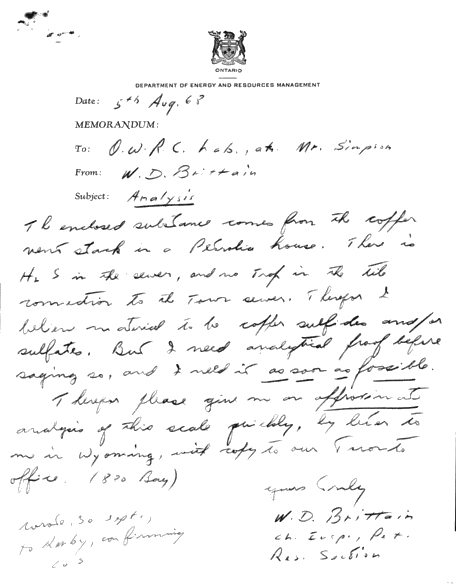 ONTARIO
DEPARTMENT OF ENERGY AND RESOURCES MANAGEMENT
Date: 5th Aug. 68
MEMORANDUM:
To: O.W.R.C. Lab., att. Mr. Simpson
From: W. D. Brittain
Subject: Analysis
Th enclosed substance comes from th copper
vent stack in a Petrolia house. Ther is
H2 S in the sewer, and no Trap in the tile
connection to th Town sewer. Therefor I
believe material to be copper sulfides and/or
sulfates. But I need analytical proof before
saying so, and I need it as soon as possible.
Therefor please give me an approximate
analysis of this scale quickly, by letter to
me in Wyoming, with copy to our Toronto
office. (880 Bay)
yours truly
W. D. Brittain
Ch. Insp., Pet.
Res. Section
wrote, 30 Sept.,
to Kerby, confirming
CuS